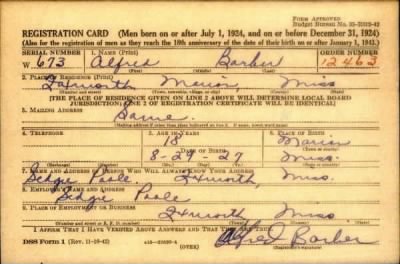 FORM APPROVED
Budget Bureau No. 33-R019-42
REGISTRATION CARD (Men born on or after July 1, 1924, and on or before December 31, 1924)
(Also for the registration of men as they reach the 18th anniversary of the date of their birth on or after January 1, 1943.)
SERIAL NUMBER 1. NAME (Print) ORDER NUMBER
W 673 Alfred Barber 12463
(First) (Middle) (Last)
2. PLACE OF RESIDENCE (Print)
Marion Miss
(Number and street) (Town, township, village, or city) (County) (State)
[THE PLACE OF RESIDENCE GIVEN ON LINE 2 ABOVE WILL DETERMINE LOCAL BOARD
JURISDICTION; LINE 2 OF REGISTRATION CERTIFICATE WILL BE IDENTICAL]
3. MAILING ADDRESS
Same
4. TELEPHONE 5. AGE IN YEARS 6. PLACE OF BIRTH
18 Marion
DATE OF BIRTH (Town or county)
8-29-27 Miss.
(Exchange) (Number) (Mo.) (Day) (Yr.) (State or country)
7. NAME AND ADDRESS OF PERSON WHO WILL ALWAYS KNOW YOUR ADDRESS
Poole Miss.
8. EMPLOYER'S NAME AND ADDRESS
Poole
9. PLACE OF EMPLOYMENT OR BUSINESS
Miss
(Number and street or R. F. D. number) (Town) (County) (State)
I AFFIRM THAT I HAVE VERIFIED ABOVE ANSWERS AND THAT THEY ARE TRUE.
DSS Form 1 (Rev. 11-16-42) (OVER) Alfred Barber